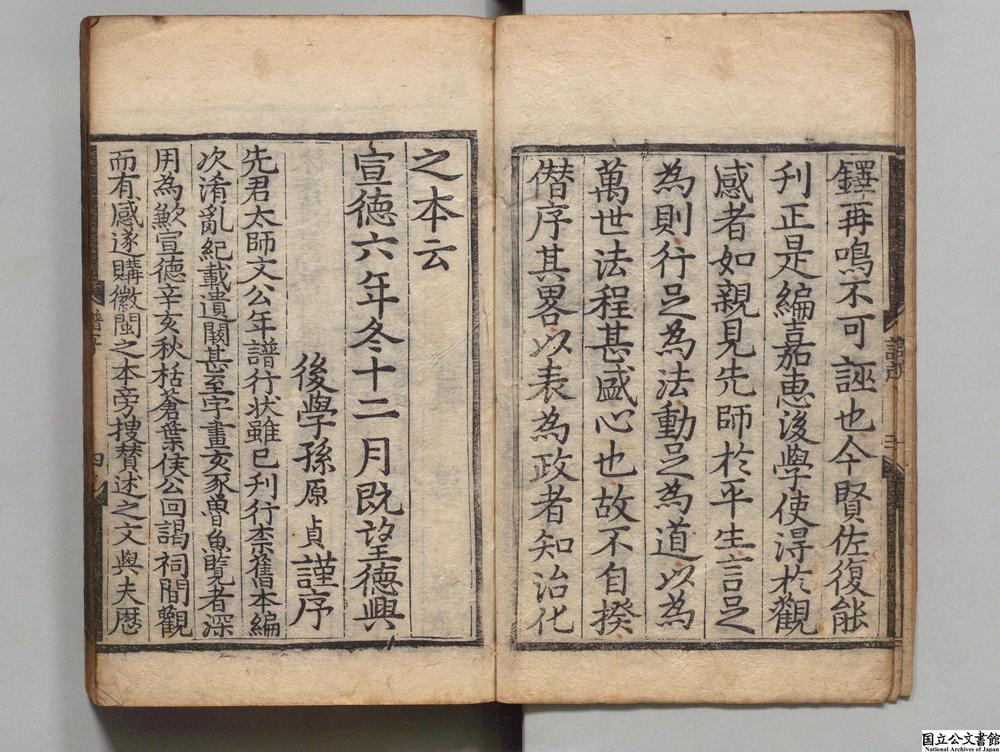 鐸再鳴不可誣也今賢佐復能
刊正是編嘉惠後學使淂於觀
感者如親見先師於平生言足
為則行足為法動足為道以為
萬世法程甚盛心也故不自揆
僣序其畧以表為政者知治化
之本云
宣德六年冬十二月既望德興
後學孫原貞謹序
先君太師文公年譜行状雖已刊行柰舊本編
次淆亂紀載遺闕甚至字畫亥豕曽魚覽者深
用為歉宣德辛亥秋栝蒼葉侯公回謁祠間觀
而有感遂購徽閩之本旁搜賛述之文與夫歴
譜序
四
国立公文書館
National Archives of Japan